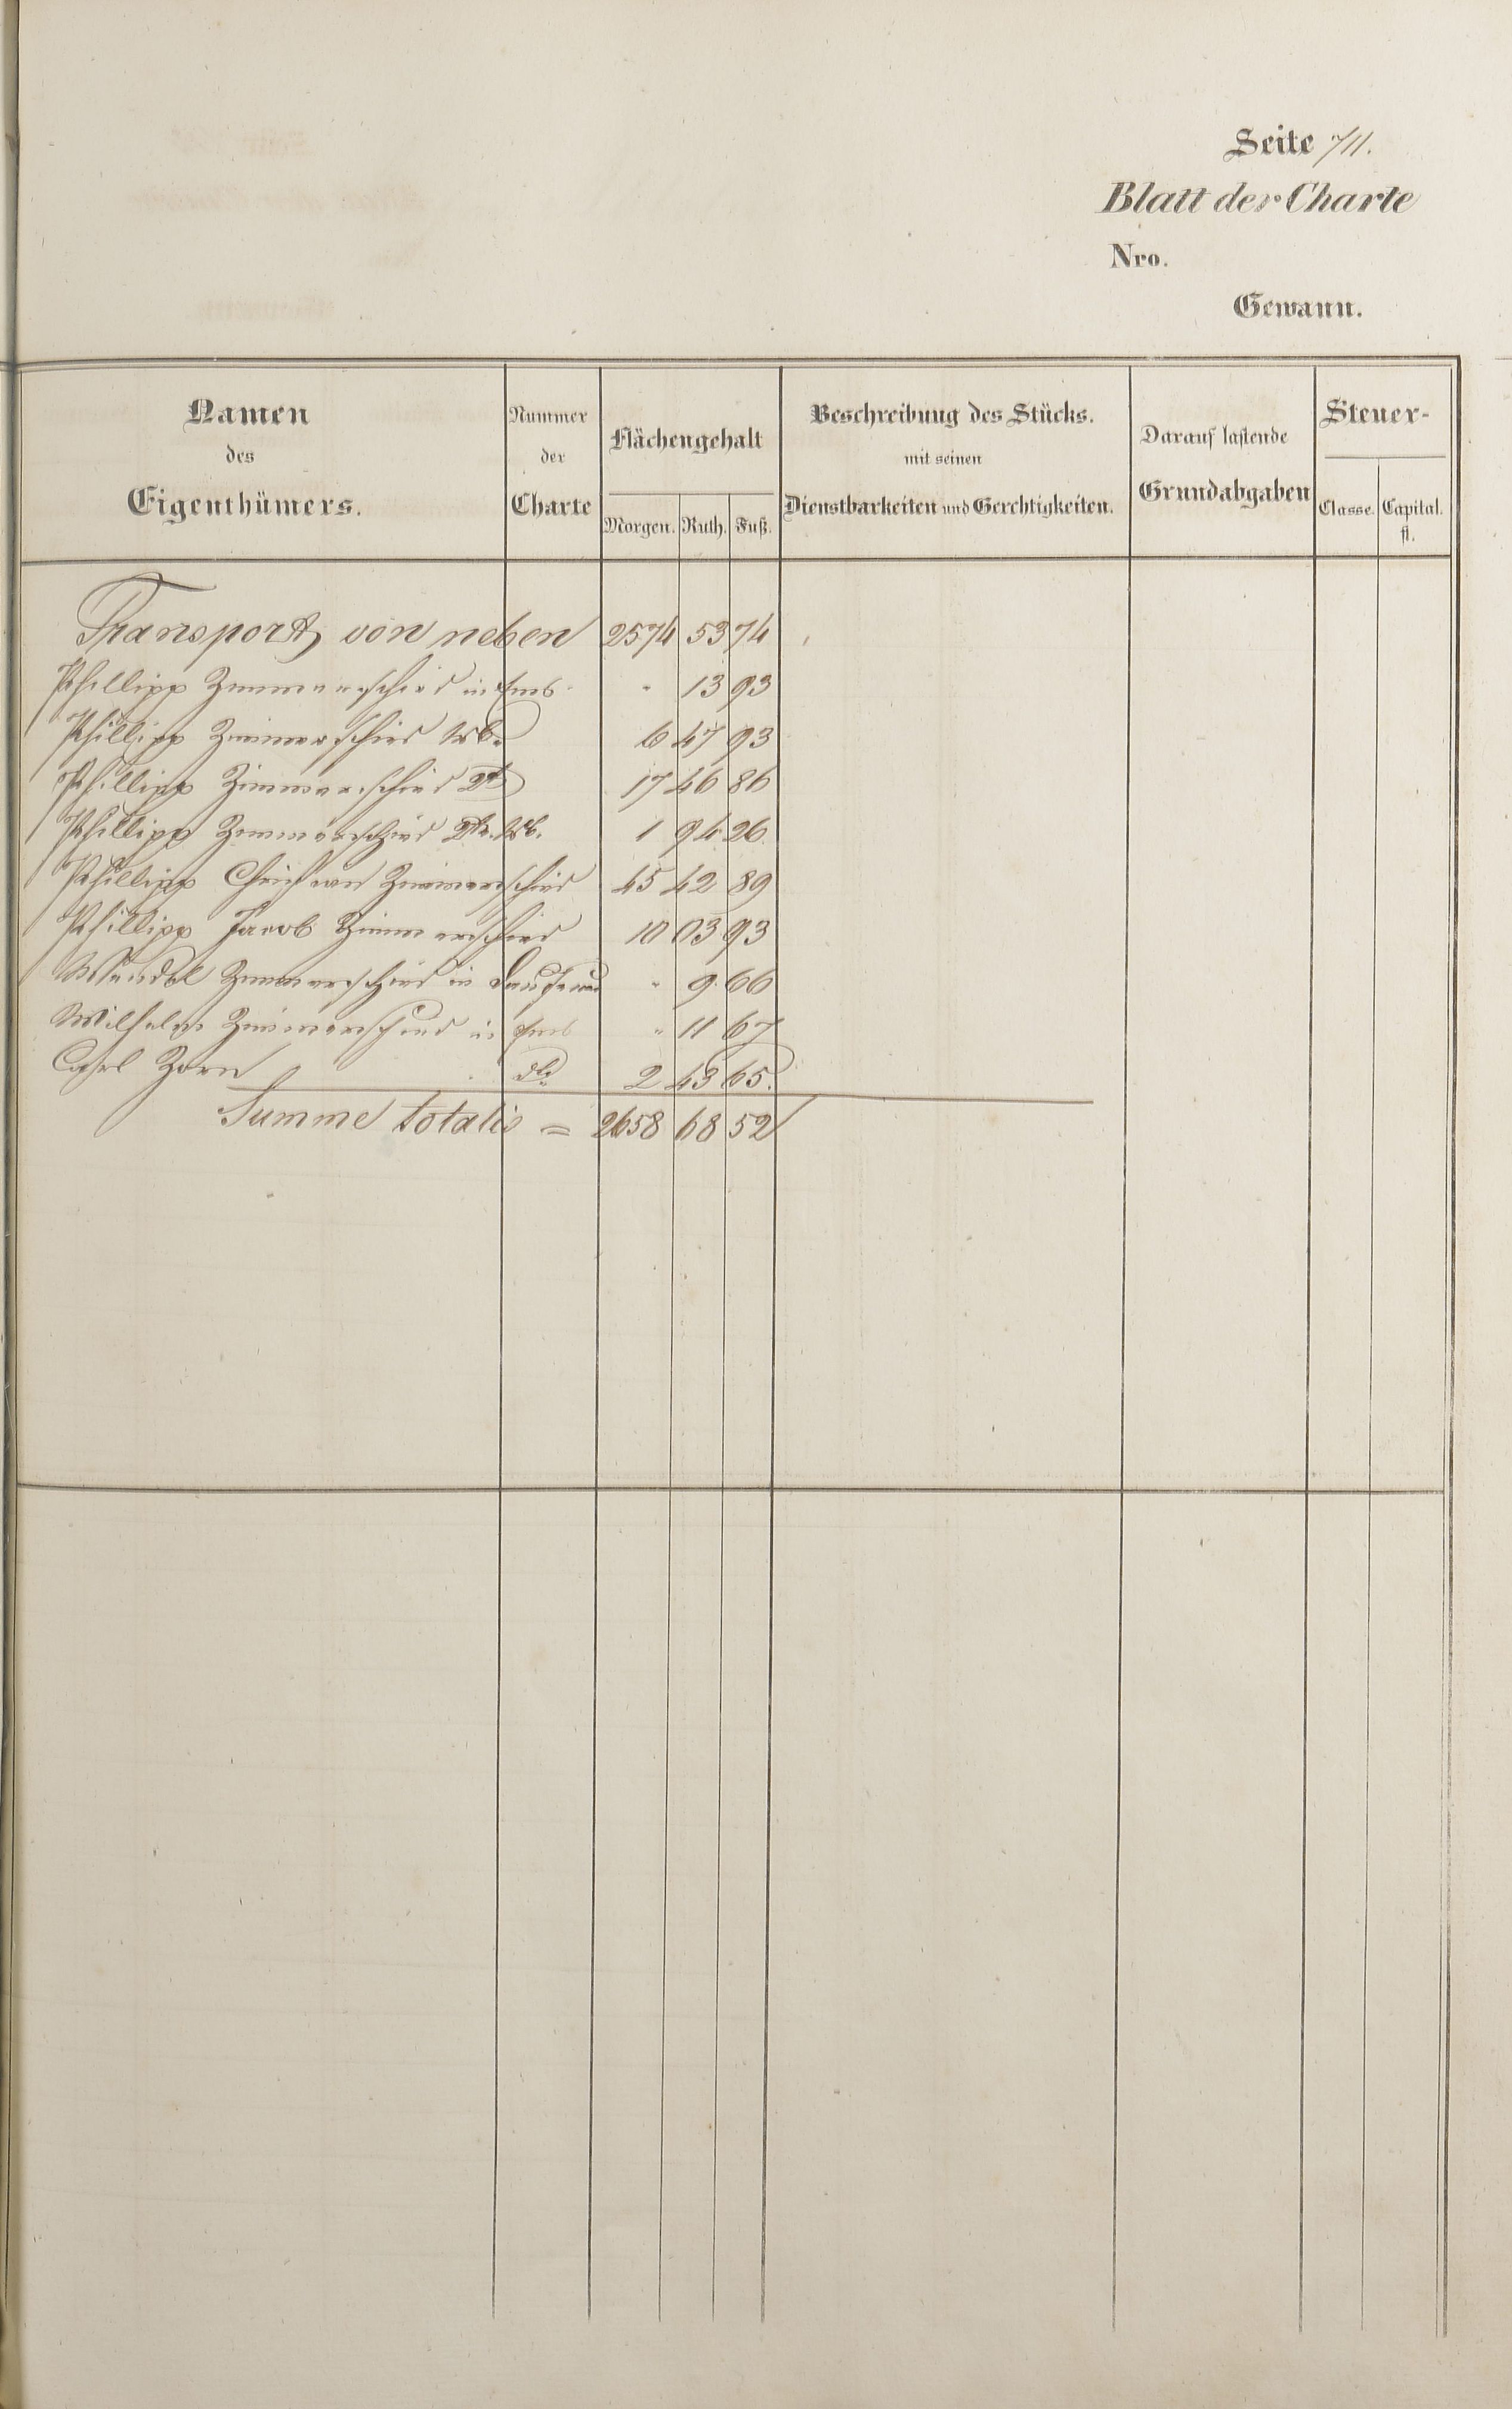 Seite 711.
Blatt der Charte
Nro.
Gewann.
Namen des Eigenthümers.
Nummer der Charte
Flächengehalt
Morgen. Ruth. Fuß.
Beschreibung des Stücks.
mit seinen
Dienstbarkeiten und Gerechtigkeiten.
Darauf lastende
Grundabgaben
Steuer-
Classe. Capital. fl.
Transport von neben 2574 53 74
Phillipp Zimmerschied in Ems " 13 93
Phillipp Zimmerschied Wb. 6 47 93
Phillipp Zimmerschied 2t 17 46 86
Phillipp Zimmerschied 2tr. Wb. 1 94 26
Phillipp Christian Zimmerschied 45 42 89
Phillipp Jacob Zimmerschied 10 03 93
Wendel Zimmerschied in Dausenau " 9 66
Wilhelm Zimmerschied in Ems " 11 67
Carl Zorn do 2 43 65.
Summe totalis = 2658 68 52